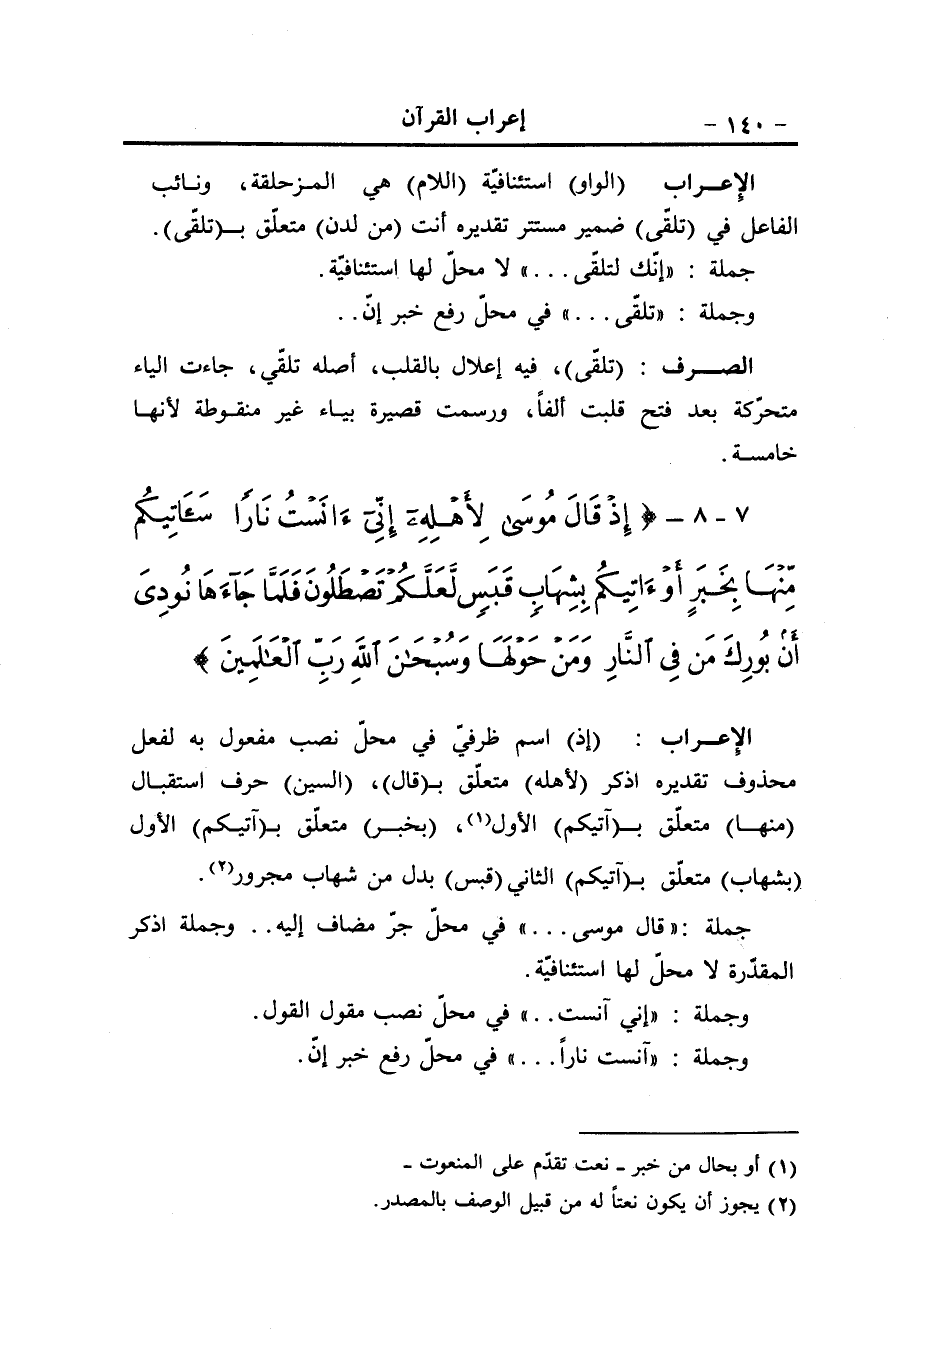 - ١٤٠ - إعراب القرآن
الإعـــراب (الواو) استئنافيّة (اللام) هي المـزحلقة، ونـائب
الفاعل في (تلقّى) ضمير مستتر تقديره أنت (من لدن) متعلّق بــ(تلقّى).
جملة : «إنّك لتلقّى...» لا محلّ لها استئنافيّة.
وجملة : «تلقّى...» في محلّ رفع خبر إنّ..
الصـــرف : (تلقّى)، فيه إعلال بالقلب، أصله تلقّي، جاءت الياء
متحرّكة بعد فتح قلبت ألفاً، ورسمت قصيرة بيـاء غير منقـوطة لأنهـا
خامسـة.
٧ - ٨ - ﴿ إِذْ قَالَ مُوسَىٰ لِأَهْلِهِۦٓ إِنِّىٓ ءَانَسْتُ نَارًا سَـَٔاتِيكُم
مِّنْهَا بِخَبَرٍ أَوْ ءَاتِيكُم بِشِهَابٍ قَبَسٍ لَّعَلَّكُمْ تَصْطَلُونَ فَلَمَّا جَآءَهَا نُودِىَ
أَنۢ بُورِكَ مَن فِى ٱلنَّارِ وَمَنْ حَوْلَهَا وَسُبْحَٰنَ ٱللَّهِ رَبِّ ٱلْعَٰلَمِينَ ﴾
الإعـــراب : (إذ) اسم ظرفيّ في محلّ نصب مفعول به لفعل
محذوف تقديره اذكر (لأهله) متعلّق بـ(قال)، (السين) حرف استقبـال
(منهـا) متعلّق بــ(آتيكم) الأول(١)، (بخبـر) متعلّق بـ(آتيـكم) الأول
(بشهاب) متعلّق بـ(آتيكم) الثاني (قبس) بدل من شهاب مجرور(٢).
جملة :«قال موسى...» في محلّ جرّ مضاف إليه.. وجملة اذكر
المقدّرة لا محلّ لها استئنافيّة.
وجملة : «إني آنست..» في محلّ نصب مقول القول.
وجملة : «آنست ناراً...» في محلّ رفع خبر إنّ.
(١) أو بحال من خبر ـ نعت تقدّم على المنعوت ـ
(٢) يجوز أن يكون نعتاً له من قبيل الوصف بالمصدر.